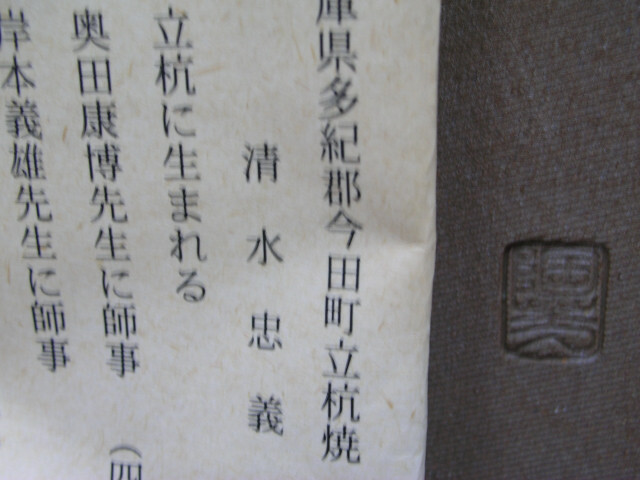 庫県多紀郡今田町立杭焼
清水忠義
立杭に生まれる
奥田康博先生に師事（四
岸本義雄先生に師事